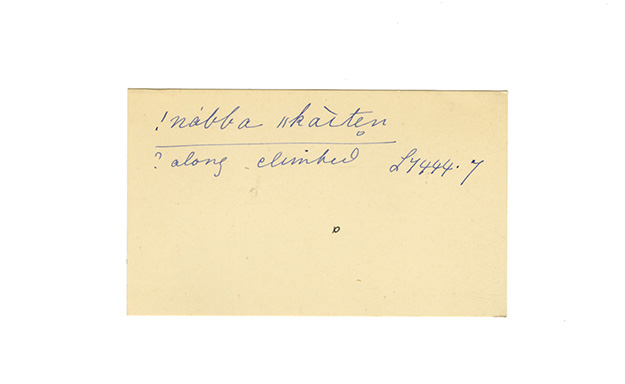 !nábba ǁkāïtẹn
? along climbed L7444.7